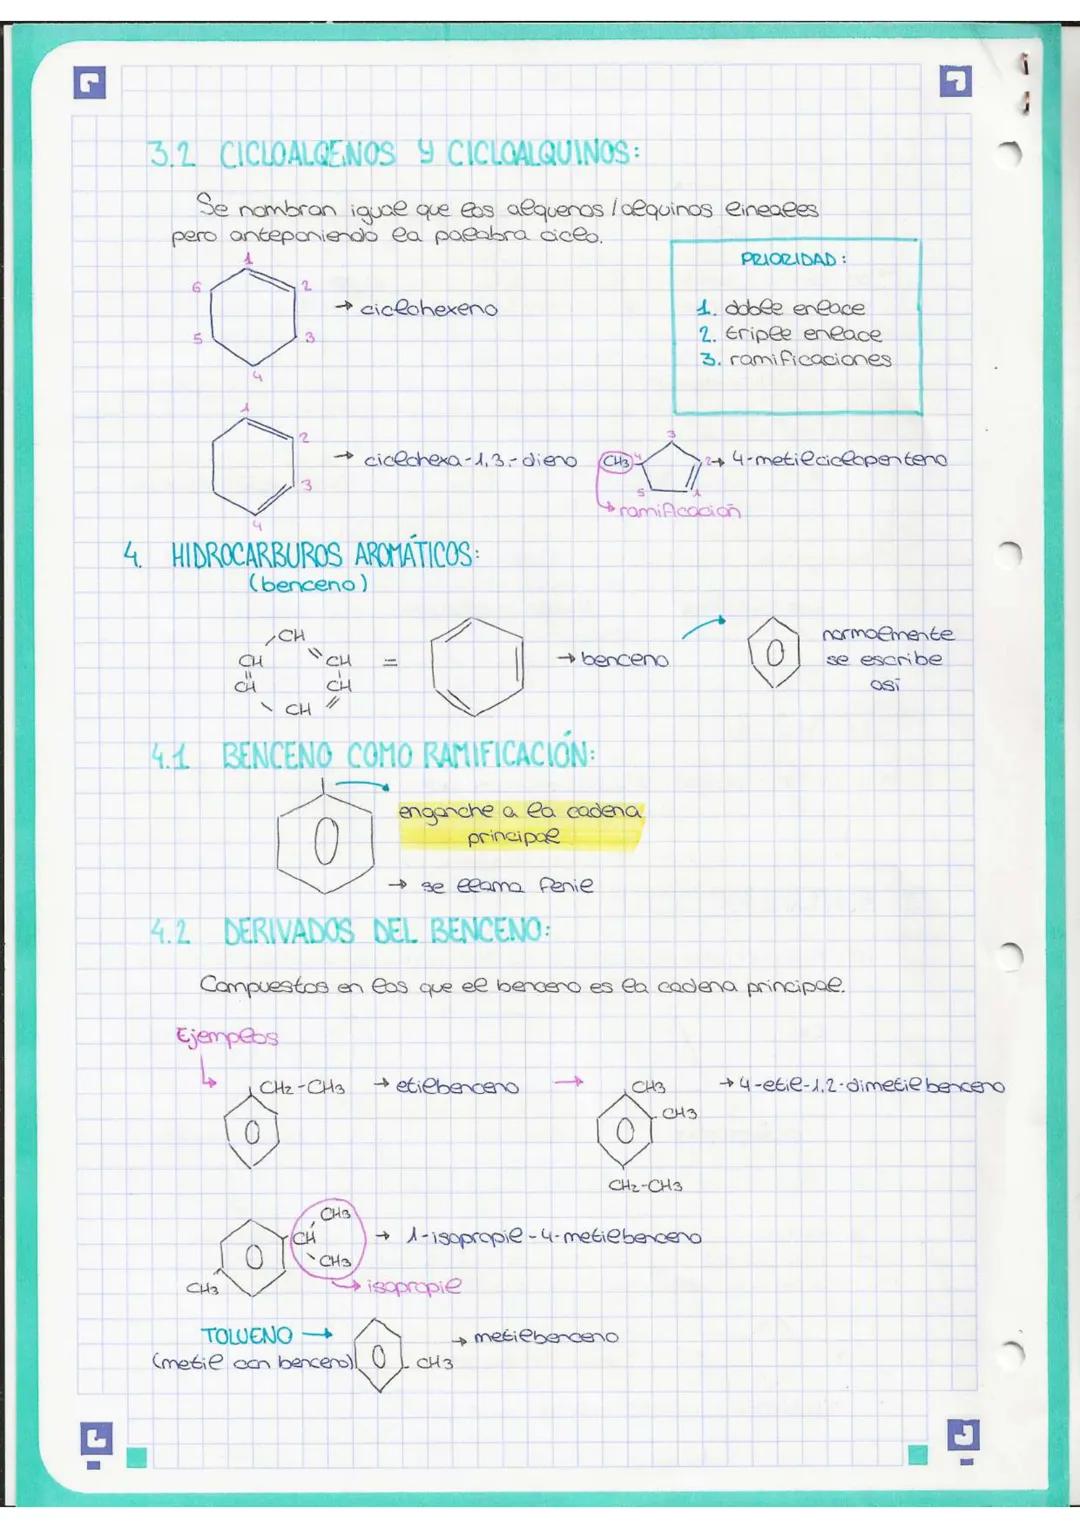 3.2 CICLOALQENOS Y CICLOALQUINOS:
Se nombran igual que los alquenos / alquinos lineales
pero anteponiendo la palabra ciclo.
PRIORIDAD:
1. doble enlace
2. triple enlace
3. ramificaciones
1
6 2
→ ciclohexeno
5 3
4
1
2
→ ciclohexa-1,3,-dieno
3
4
3
CH3 4 2 → 4-metilciclopenteno
5 1
ramificación
4. HIDROCARBUROS AROMÁTICOS:
(benceno)
CH
CH CH
=
CH CH
CH
→ benceno
normalmente
se escribe
así
4.1 BENCENO COMO RAMIFICACIÓN:
enganche a la cadena
principal
→ se llama fenil
4.2 DERIVADOS DEL BENCENO:
Compuestos en los que el benceno es la cadena principal.
Ejemplos
CH2-CH3 → etilbenceno
→ CH3 → 4-etil-1,2-dimetilbenceno
CH3
CH2-CH3
CH3
CH → 1-isopropil-4-metilbenceno
CH3
CH3 isopropil
TOLUENO → → metilbenceno
(metil con benceno) CH3